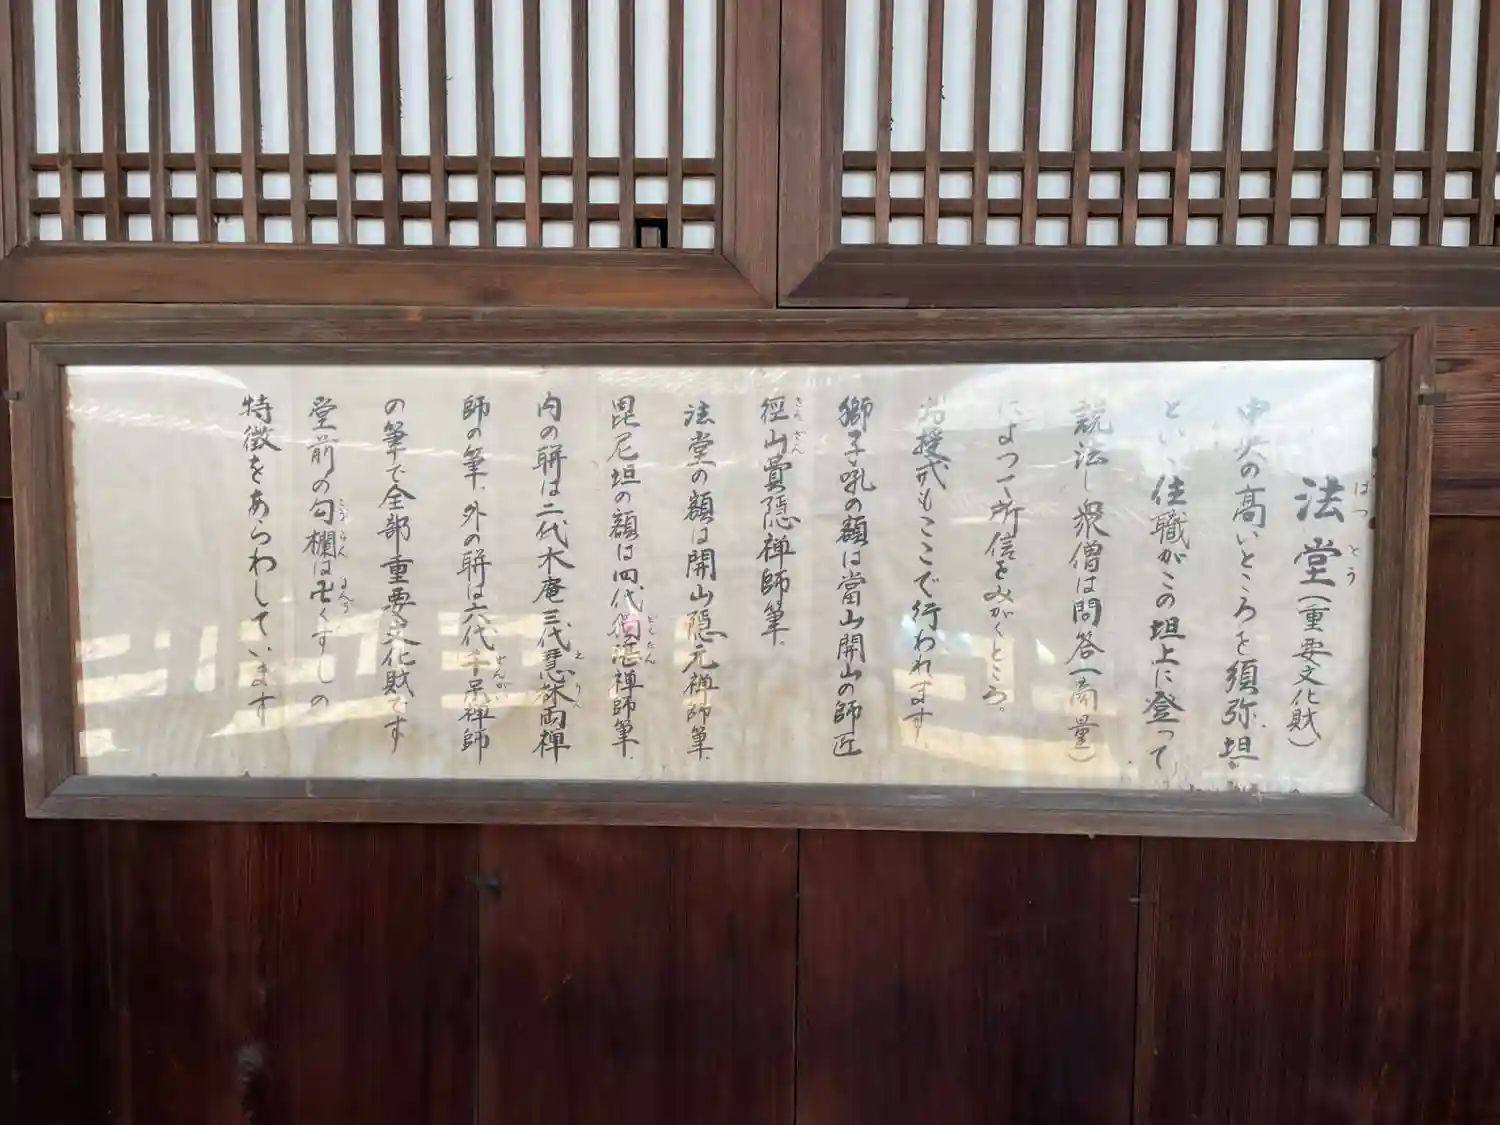 法堂(重要文化財)
はっとう
中央の高いところを須弥坦
といい住職がこの坦上に登って
説法し衆僧は問答(商量)
によって所信をみがくところ。
授戒もここで行われます
獅子吼の額は當山開山の師匠
徑山費隠禅師筆、
きんざん
法堂の額は開山隠元禅師筆、
毘尼坦の額は四代獨湛禅師筆、
どくたん
内の聨は二代木庵三代慧林両禅
えりん
師の筆、外の聨は六代千呆禅師
せんがい
の筆で全部重要文化財です
堂前の勾欄は卍くずしの
こうらん まんじ
特徴をあらわしています